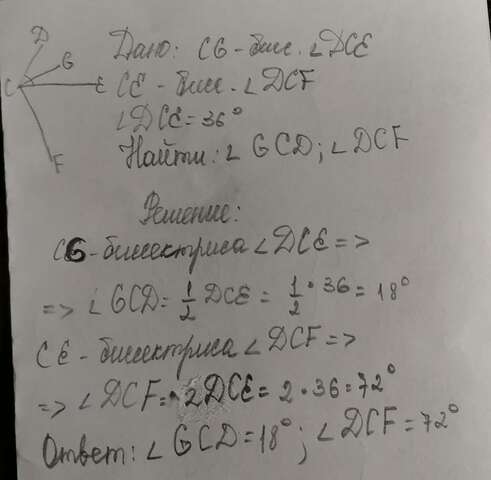 D
G
C
E
F
Дано: CG - бисс. ∠DCE
CE - бисс. ∠DCF
∠DCE = 36°
Найти: ∠GCD; ∠DCF
Решение:
CG - биссектриса ∠DCE =>
=> ∠GCD = 1/2 DCE = 1/2 · 36 = 18°
CE - биссектриса ∠DCF =>
=> ∠DCF = 2DCE = 2 · 36 = 72°
Ответ: ∠GCD = 18°; ∠DCF = 72°